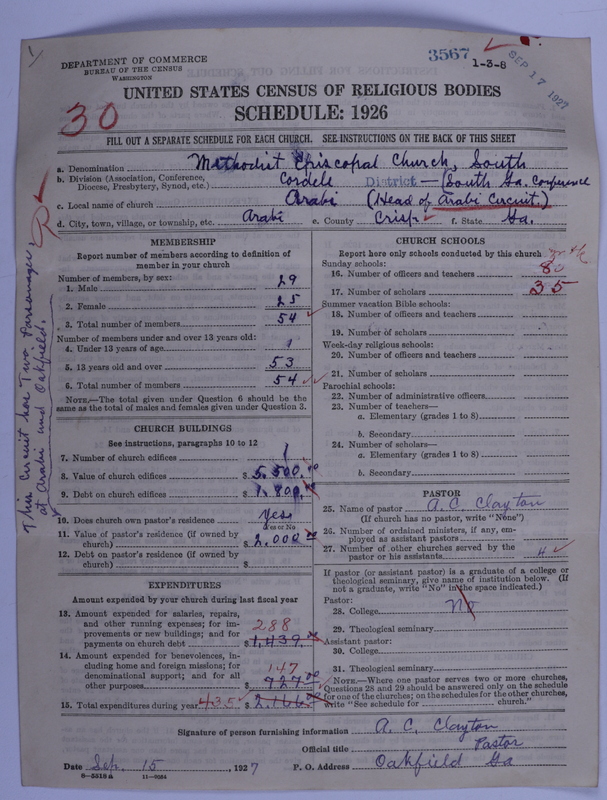 3567
1-3-8
SEP 17 1927
DEPARTMENT OF COMMERCE
BUREAU OF THE CENSUS
WASHINGTON
UNITED STATES CENSUS OF RELIGIOUS BODIES
SCHEDULE: 1926
30
FILL OUT A SEPARATE SCHEDULE FOR EACH CHURCH. SEE INSTRUCTIONS ON THE BACK OF THIS SHEET
a. Denomination Methodist Episcopal Church, South
b. Division (Association, Conference, Diocese, Presbytery, Synod, etc.) Cordele District — (South Ga. Conference
c. Local name of church Arabi (Head of Arabi Circuit.)
d. City, town, village, or township, etc. Arabi e. County Crisp f. State Ga.
This Circuit has Two Parsonages:
at Arabi and Oakfield.
MEMBERSHIP
Report number of members according to definition of
member in your church
Number of members, by sex:
1. Male 29
2. Female 25
3. Total number of members 54
Number of members under and over 13 years old:
4. Under 13 years of age 1
5. 13 years old and over 53
6. Total number of members 54
NOTE.—The total given under Question 6 should be
same as the total of males and females given under Question 3.
CHURCH BUILDINGS
See instructions, paragraphs 10 to 12
7. Number of church edifices 1
8. Value of church edifices $ 5,500.00
9. Debt on church edifices $ 1,800
10. Does church own pastor's residence Yes
Yes or No
11. Value of pastor's residence (if owned by
church) $ 2,000
12. Debt on pastor's residence (if owned by
church) $
EXPENDITURES
Amount expended by your church during last fiscal year
13. Amount expended for salaries, repairs,
and other running expenses; for im-
provements or new buildings; and for
payments on church debt 288 $ 1,439
14. Amount expended for benevolences, in-
cluding home and foreign missions; for
denominational support; and for all
other purposes 147 $ 727.00
15. Total expenditures during year 435 $ 2,166
CHURCH SCHOOLS
Report here only schools conducted by this church
Sunday schools:
16. Number of officers and teachers 8
17. Number of scholars 35
Summer vacation Bible schools:
18. Number of officers and teachers
19. Number of scholars
Week-day religious schools:
20. Number of officers and teachers
21. Number of scholars
Parochial schools:
22. Number of administrative officers
23. Number of teachers—
a. Elementary (grades 1 to 8)
b. Secondary
24. Number of scholars—
a. Elementary (grades 1 to 8)
b. Secondary
PASTOR
25. Name of pastor A. C. Clayton
(If church has no pastor, write "None")
26. Number of ordained ministers, if any, em-
ployed as assistant pastors
27. Number of other churches served by the
pastor or his assistants 4
If pastor (or assistant pastor) is a graduate of a college or
theological seminary, give name of institution below. (If
not a graduate, write "No" in the space indicated.)
Pastor:
28. College No
29. Theological seminary
Assistant pastor:
30. College
31. Theological seminary
NOTE.—Where one pastor serves two or more churches,
Questions 28 and 29 should be answered only on the schedule
for one of the churches; on the schedules for the other churches,
write "See schedule for church."
Signature of person furnishing information A. C. Clayton
Official title Pastor
Date Sep. 15, 1927 P. O. Address Oakfield Ga
8—5518a 11—9084